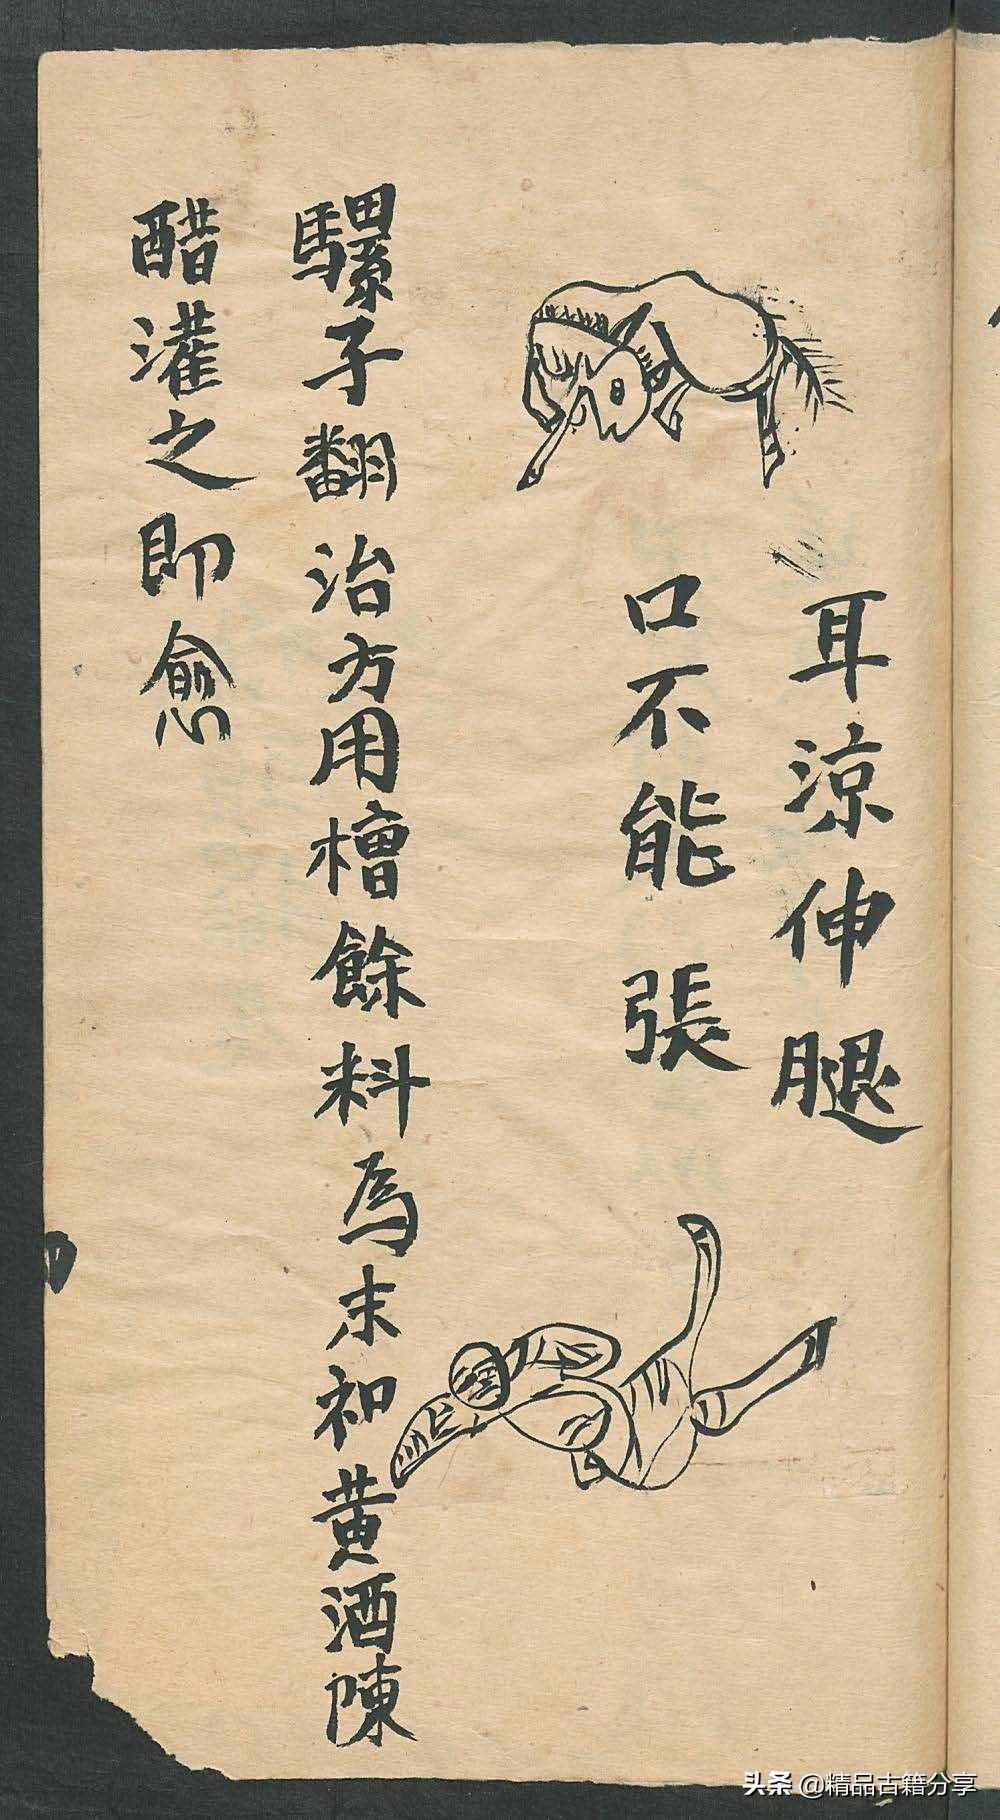 耳涼伸腿
口不能張
騾子翻治方用檜餘料為末和黄酒陳
醋灌之即愈
头条 @精品古籍分享